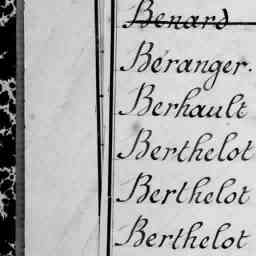 Benard
Béranger.
Berhault
Berthelot
Berthelot
Berthelot